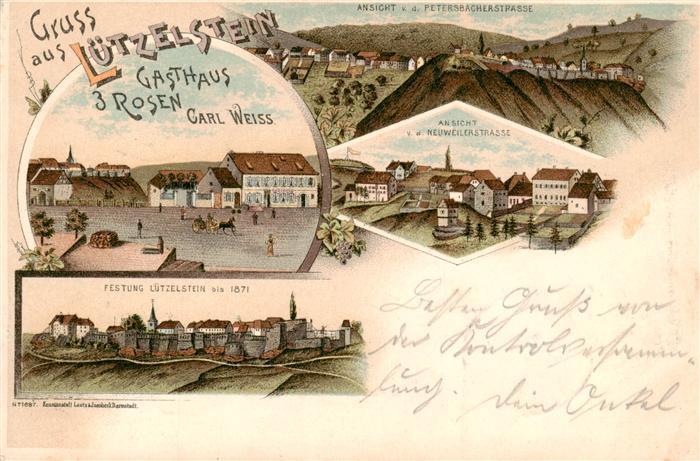 Gruss
aus
LÜTZELSTEIN
GASTHAUS
3 ROSEN
CARL WEISS
ANSICHT v. d. PETERSBÄCHERSTRASSE
ANSICHT
v. d. NEUWEILERSTRASSE
FESTUNG LÜTZELSTEIN bis 1871
Besten Gruß von
der Kontrolversamm-
lung. Dein Onkel.
Kunstanstalt Lautz & Isenbeck, Darmstadt.